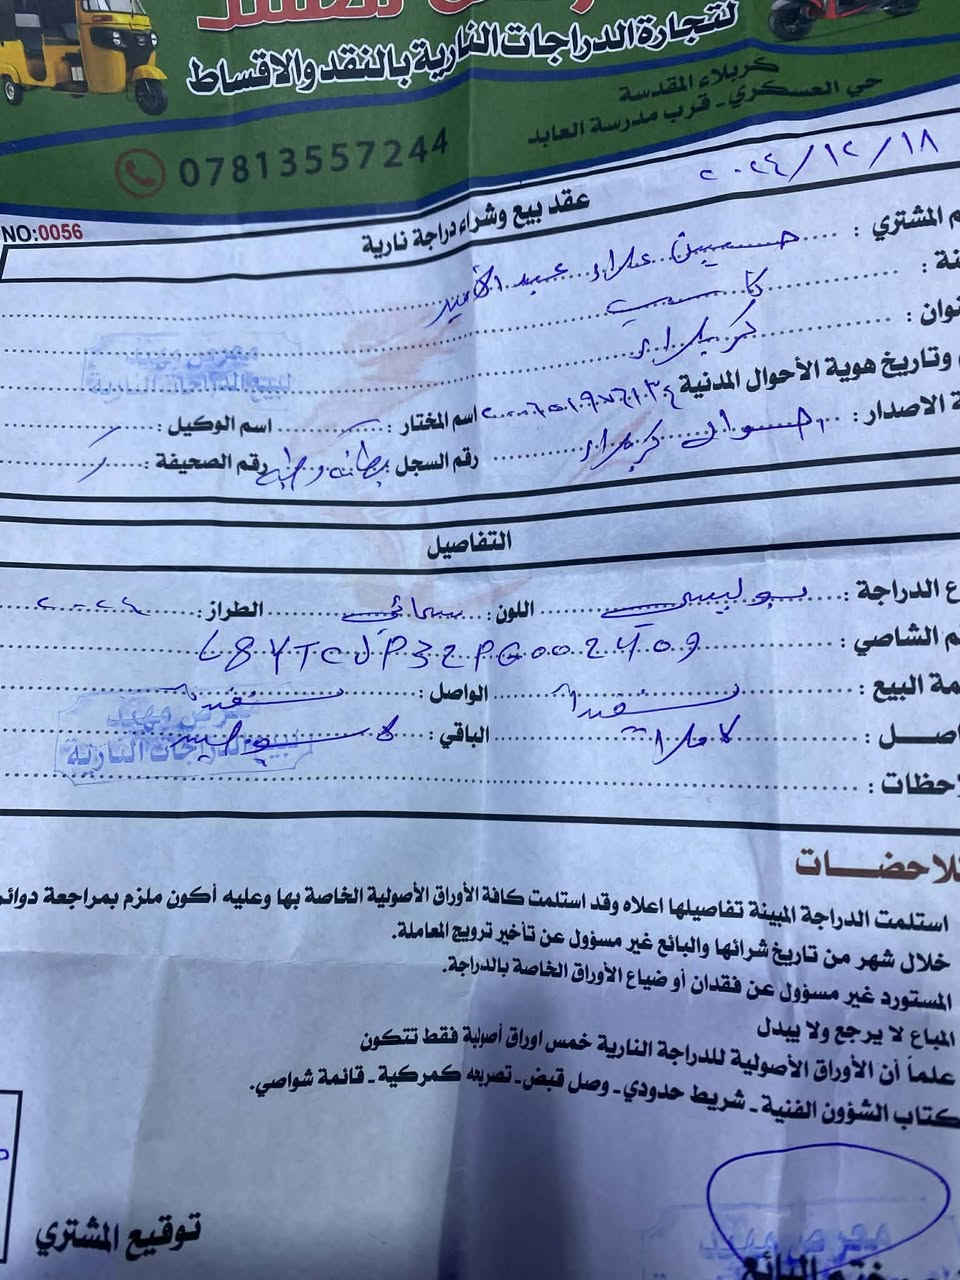 لتجارة الدراجات النارية بالنقد والاقساط
كربلاء المقدسة
حي العسكري - قرب مدرسة العابد
07813557244
٢٠٢٤/١٢/١٨
NO:0056
عقد بيع وشراء دراجة نارية
م المشتري : حسين علاء عبد الأمير
نة : كاسب
نوان : كربلاء
وتاريخ هوية الأحوال المدنية
اسم المختار : اسم الوكيل :
ة الاصدار : احوال كربلاء رقم السجل بطاقة وطنية رقم الصحيفة :
معرض مهند
لبيع الدراجات النارية
التفاصيل
ع الدراجة : بوليسي اللون : سمائي الطراز : ٢٠٢٤
م الشاصي : L8YTCJP32PG002409
مة البيع : نقداً الواصل : نقداً
اصـــل : كاملاً الباقي : لا يوجد
لاحظات :
معرض مهند
لبيع الدراجات النارية
لاحضـــات
استلمت الدراجة المبينة تفاصيلها اعلاه وقد استلمت كافة الأوراق الأصولية الخاصة بها وعليه أكون ملزم بمراجعة دوائر
خلال شهر من تاريخ شرائها والبائع غير مسؤول عن تأخير ترويج المعاملة.
المستورد غير مسؤول عن فقدان أو ضياع الأوراق الخاصة بالدراجة.
المباع لا يرجع ولا يبدل
علماً أن الأوراق الأصولية للدراجة النارية خمس اوراق أصولية فقط تتكون
كتاب الشؤون الفنية - شريط حدودي - وصل قبض - تصريحه كمركية - قائمة شواصي.
معرض مهند
توقيع المشتري
ختم البائع